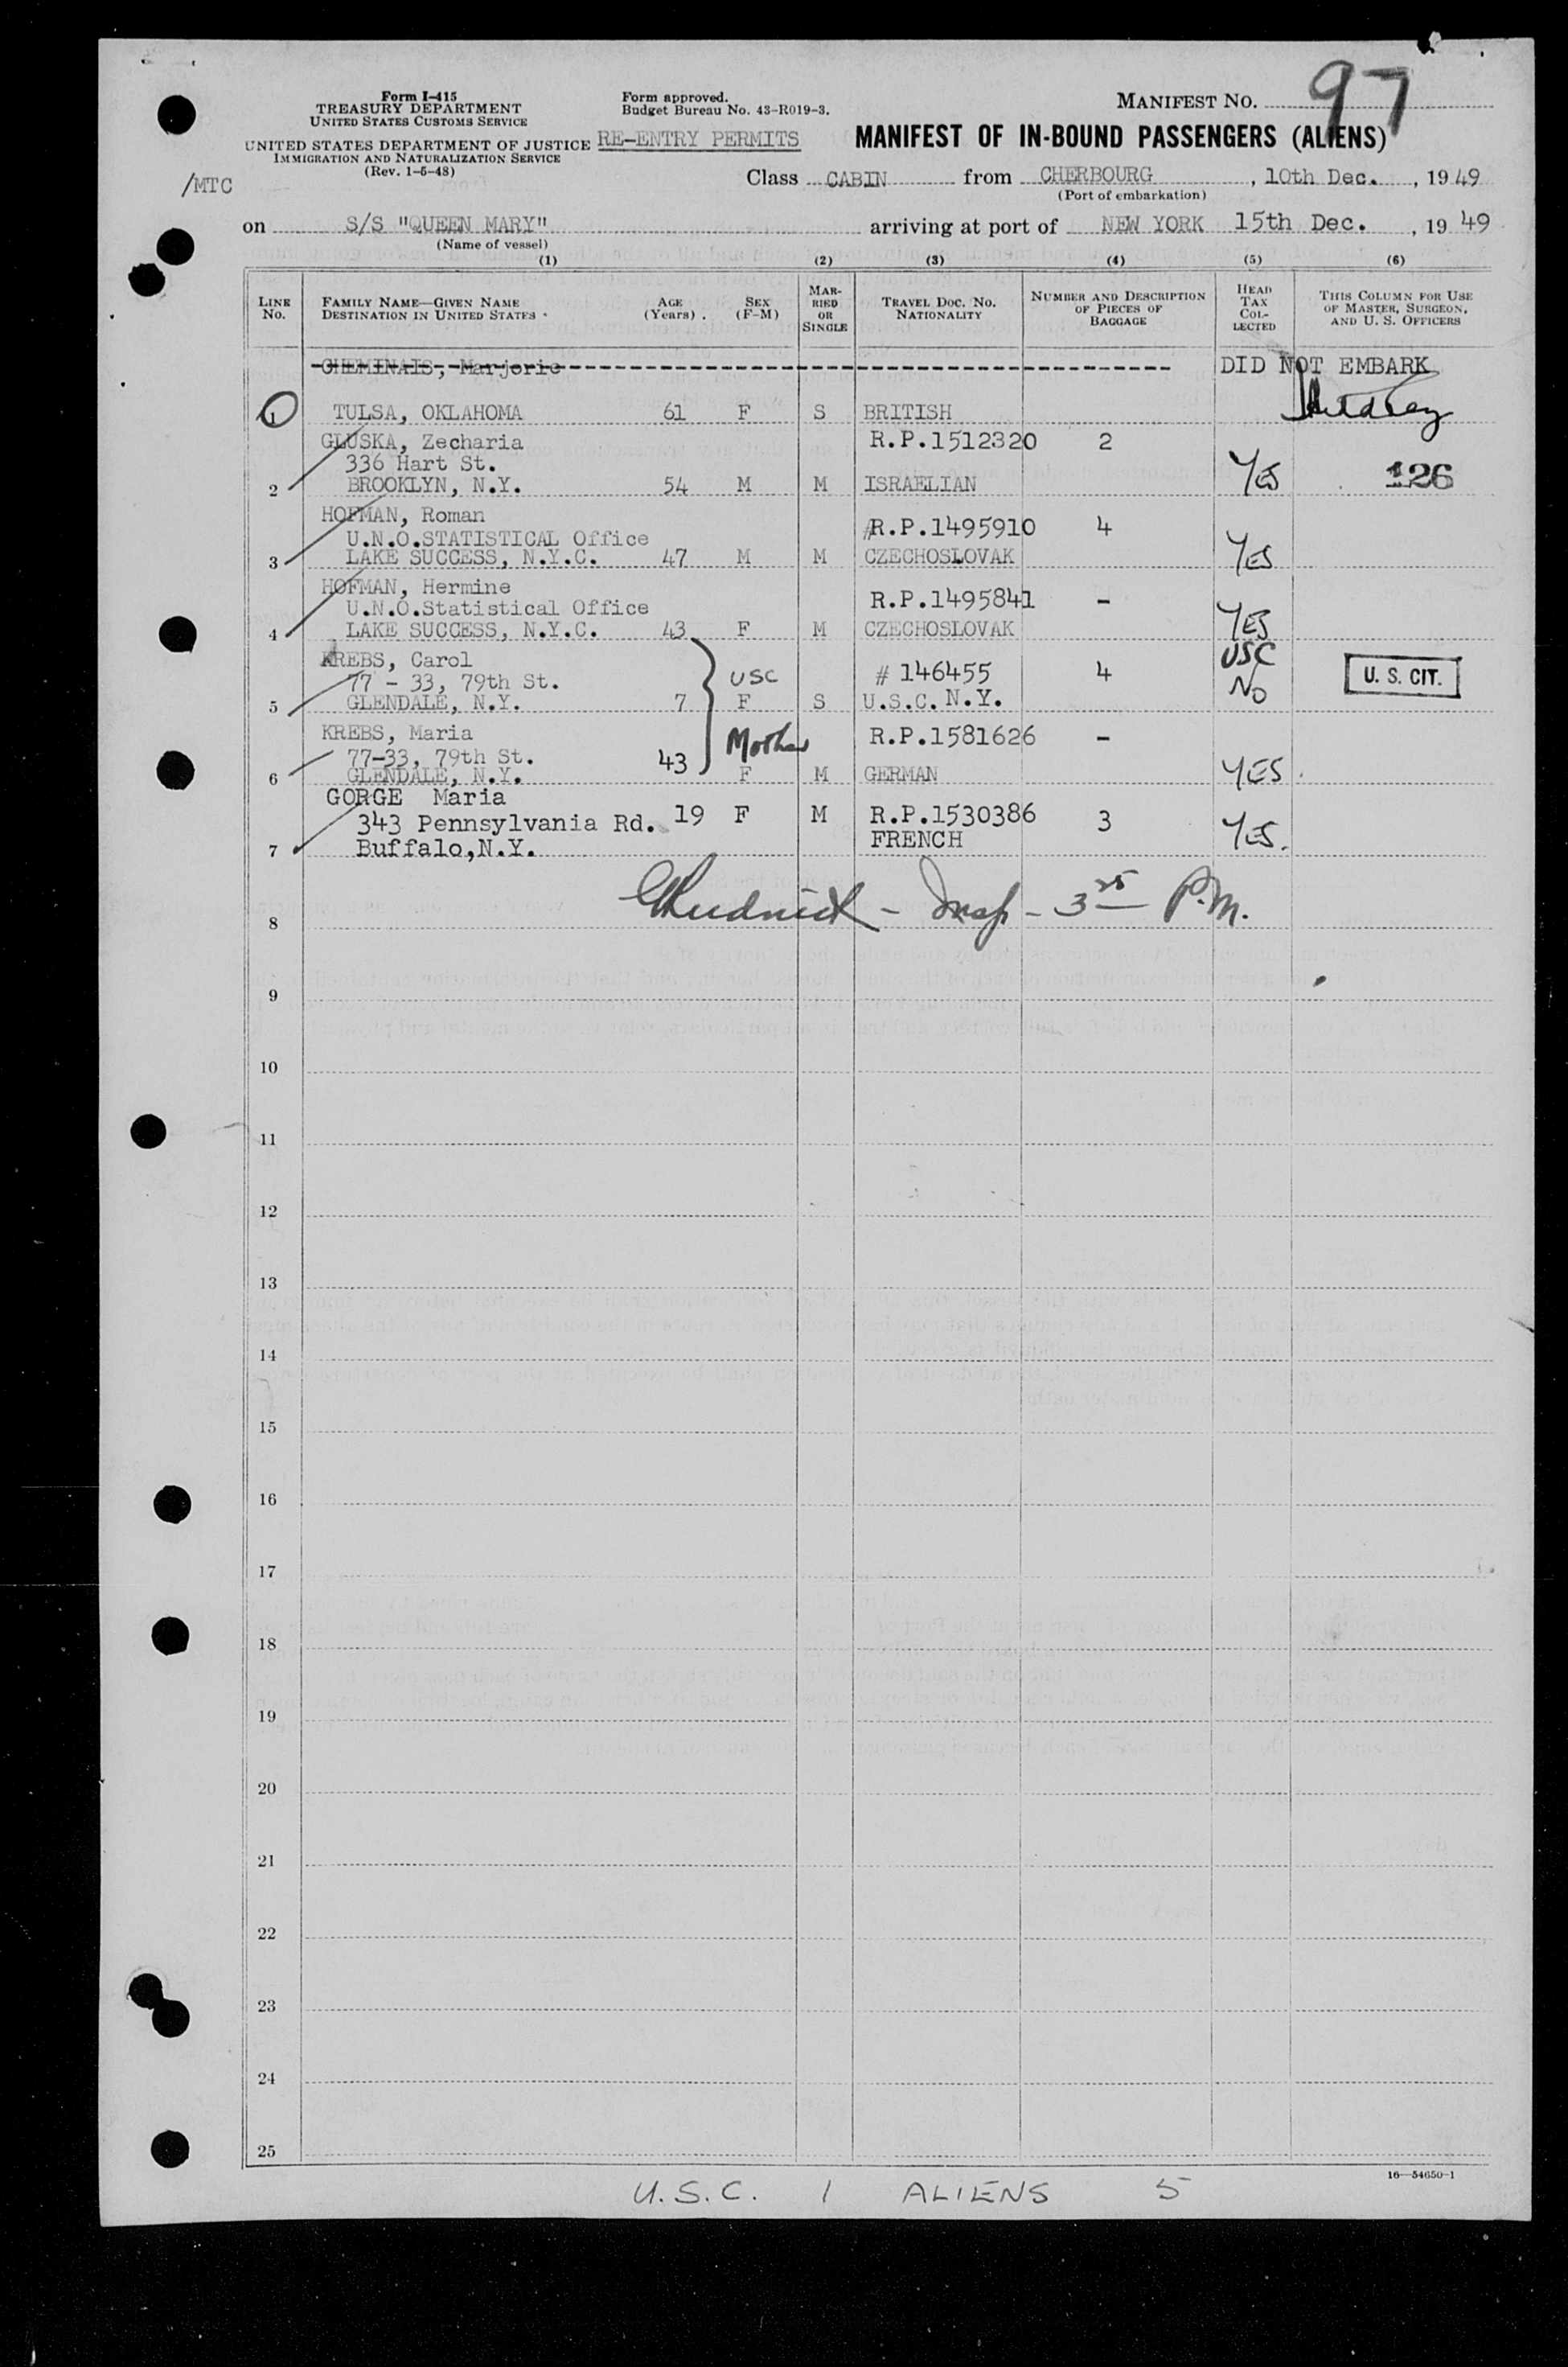 97
Form I-415
TREASURY DEPARTMENT
UNITED STATES CUSTOMS SERVICE
UNITED STATES DEPARTMENT OF JUSTICE
IMMIGRATION AND NATURALIZATION SERVICE
(Rev. 1-5-48)
/MTC
Form approved.
Budget Bureau No. 43-R019-3.
RE-ENTRY PERMITS
MANIFEST NO.
MANIFEST OF IN-BOUND PASSENGERS (ALIENS)
Class CABIN from CHERBOURG, 10th Dec., 1949
(Port of embarkation)
on S/S "QUEEN MARY" arriving at port of NEW YORK 15th Dec., 1949
(Name of vessel)
(1) (2) (3) (4) (5) (6)
LINE NO.
FAMILY NAME—GIVEN NAME
DESTINATION IN UNITED STATES
AGE (YEARS)
SEX (F-M)
MAR-RIED OR SINGLE
TRAVEL DOC. NO. NATIONALITY
NUMBER AND DESCRIPTION OF PIECES OF BAGGAGE
HEAD TAX COL-LECTED
THIS COLUMN FOR USE OF MASTER, SURGEON, AND U. S. OFFICERS
CHEMINAIS, Marjorie DID NOT EMBARK
1 TULSA, OKLAHOMA 61 F S BRITISH
GLUSKA, Zecharia R.P.1512320 2
336 Hart St.
2 BROOKLYN, N.Y. 54 M M ISRAELIAN YES 126
HOFMAN, Roman #R.P.1495910 4
U.N.O.STATISTICAL Office
3 LAKE SUCCESS, N.Y.C. 47 M M CZECHOSLOVAK YES
HOFMAN, Hermine R.P.1495841 -
U.N.O.Statistical Office
4 LAKE SUCCESS, N.Y.C. 43 F M CZECHOSLOVAK YES
KREBS, Carol USC # 146455 4 USC U. S. CIT.
77 - 33, 79th St.
5 GLENDALE, N.Y. 7 F S U.S.C. N.Y. NO
KREBS, Maria Mother R.P.1581626 -
77-33, 79th St.
6 GLENDALE, N.Y. 43 F M GERMAN YES
GORGE Maria
343 Pennsylvania Rd. 19 F M R.P.1530386 3
7 Buffalo,N.Y. FRENCH YES.
8 Insp - 3 25 P.M.
9
10
11
12
13
14
15
16
17
18
19
20
21
22
23
24
25
16—54650-1
U.S.C. 1 ALIENS 5